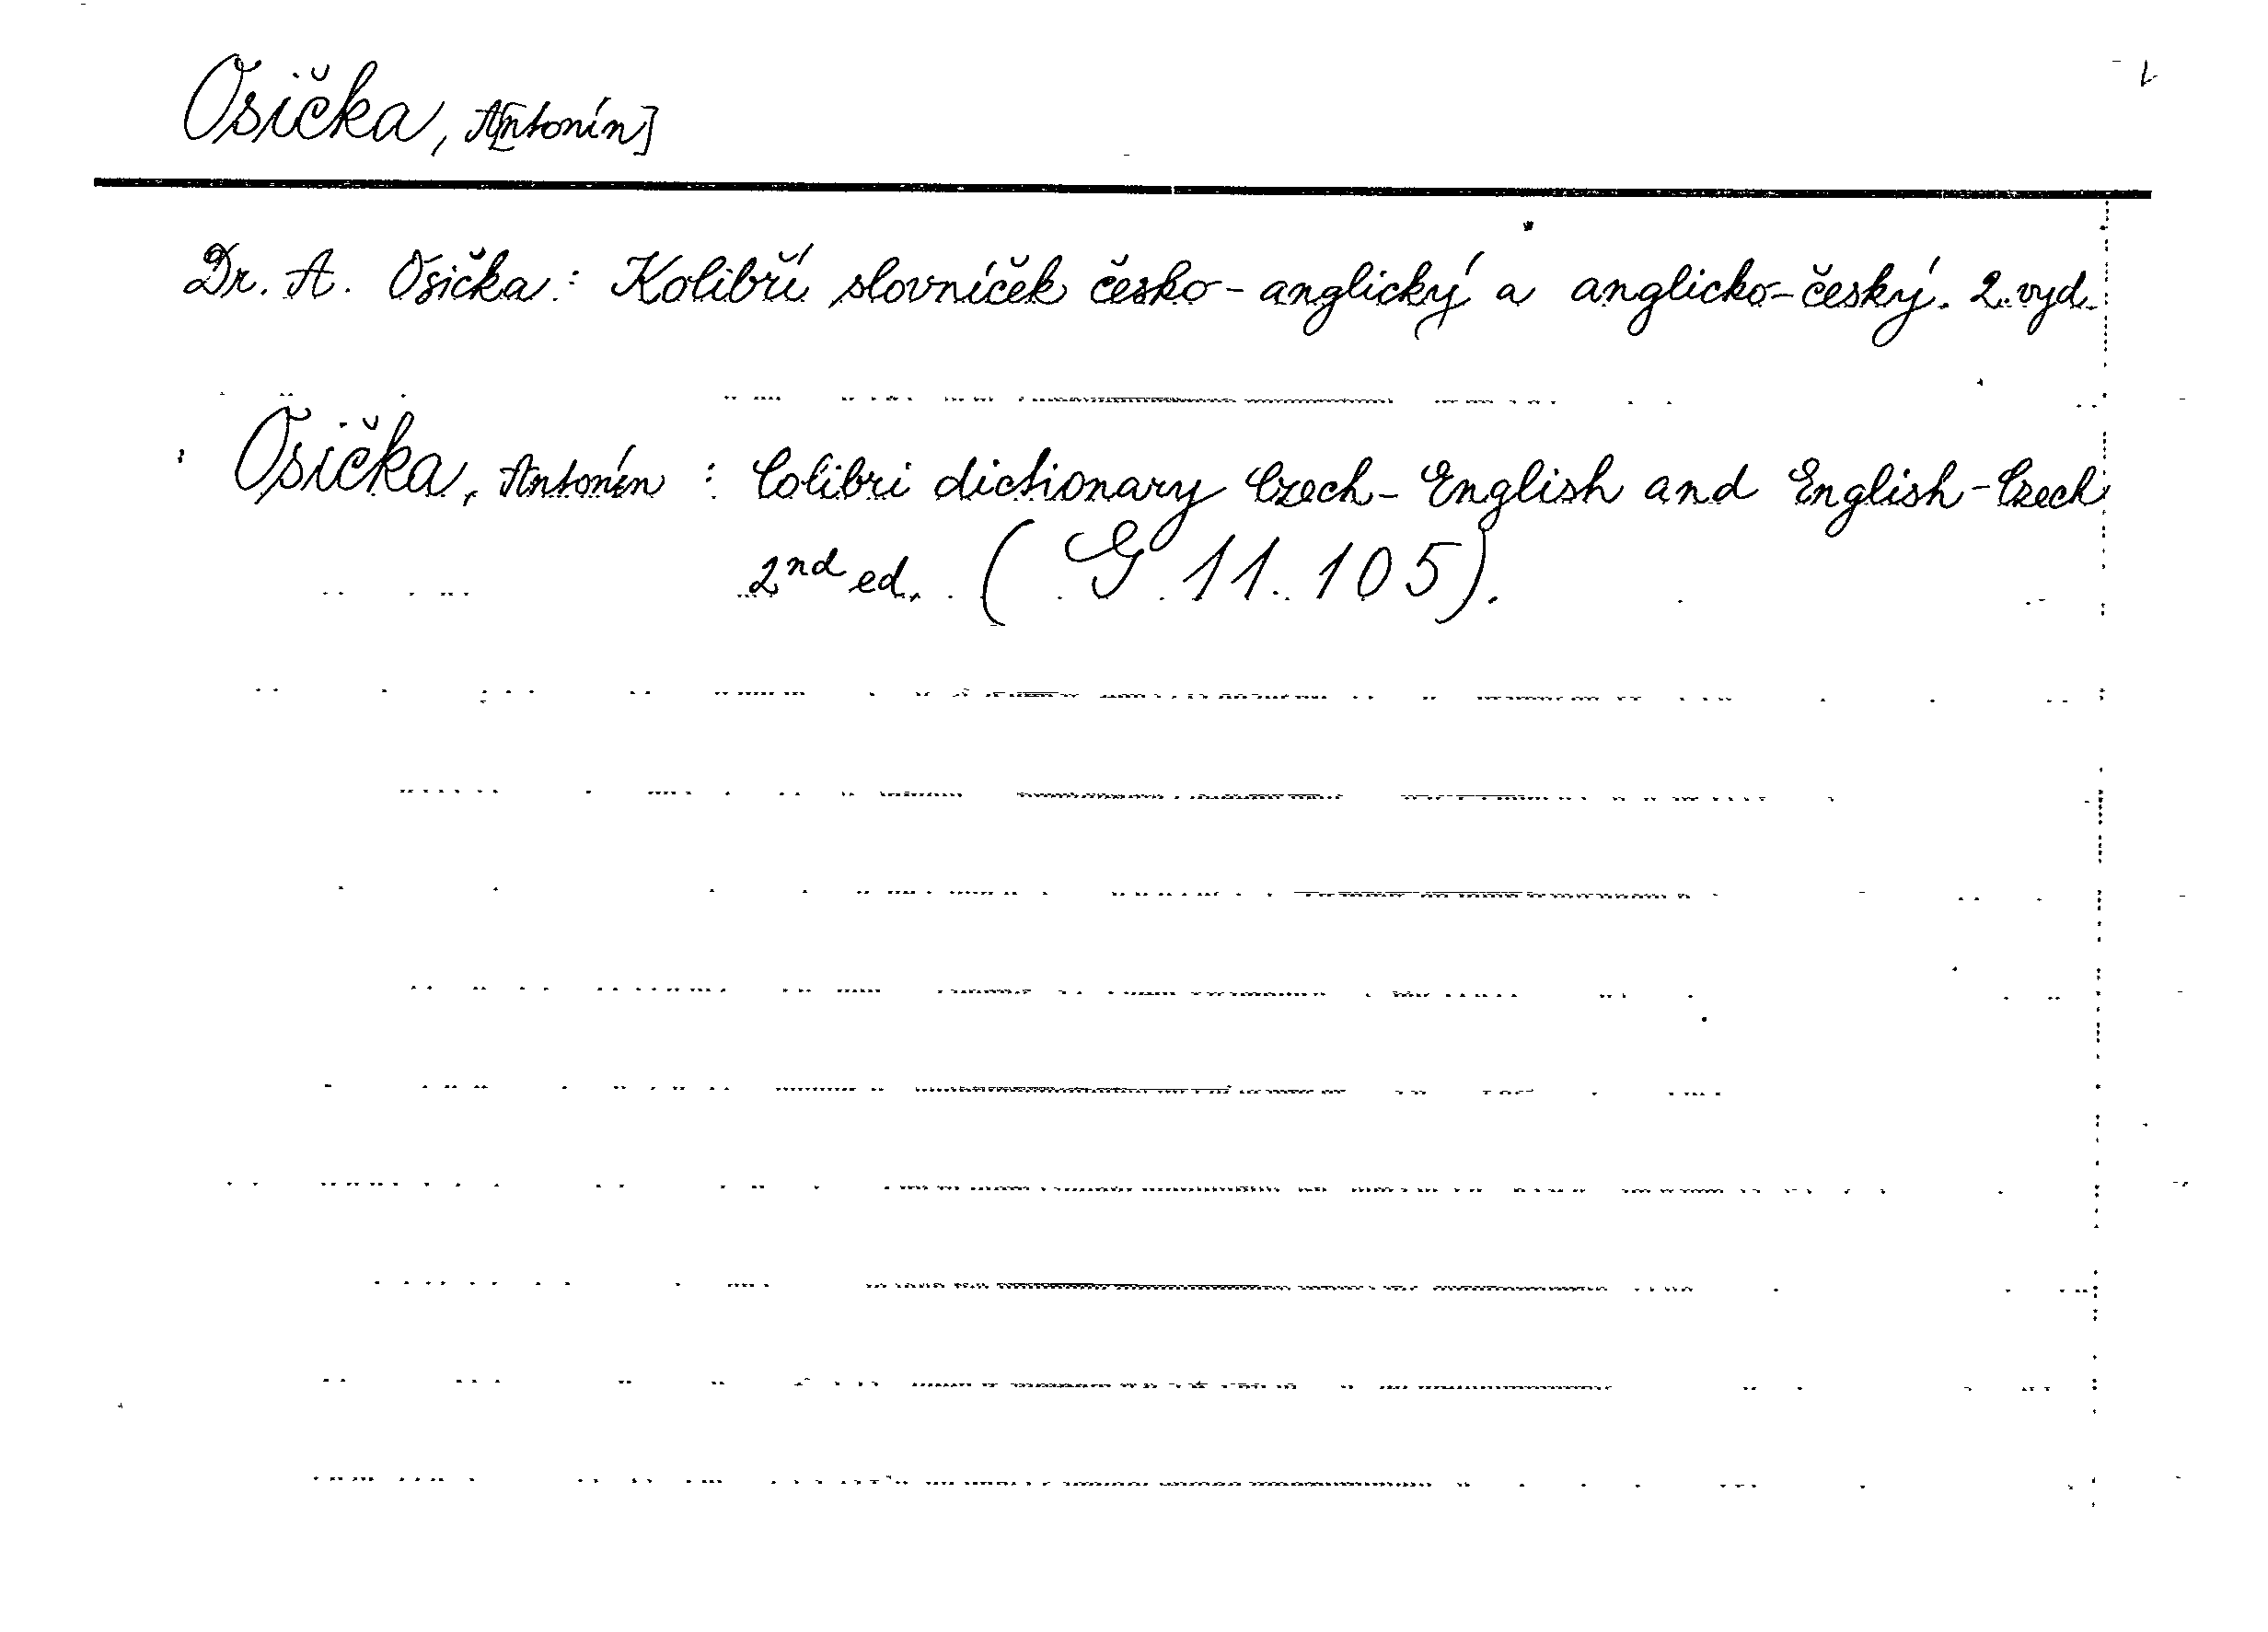 Osička, A[ntonín]
Dr. A. Osička: Kolibří slovníček česko-anglický a anglicko-český. 2. vyd.
Osička, Antonín : Colibri dictionary Czech-English and English-Czech
2nd ed. (G 11.105).